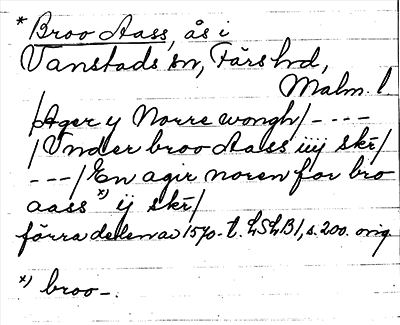 * Broo Aass, ås i
Vanstads sn, Färs hd,
Malm. l
/Ager y Norre wongh/----
/Vnder broo Aass iiij skr̄/
---/En agir noren for bro
aass x) ij skr̄/
förra delen av 1570-t. LSLB1, s. 200. orig
x) broo-.